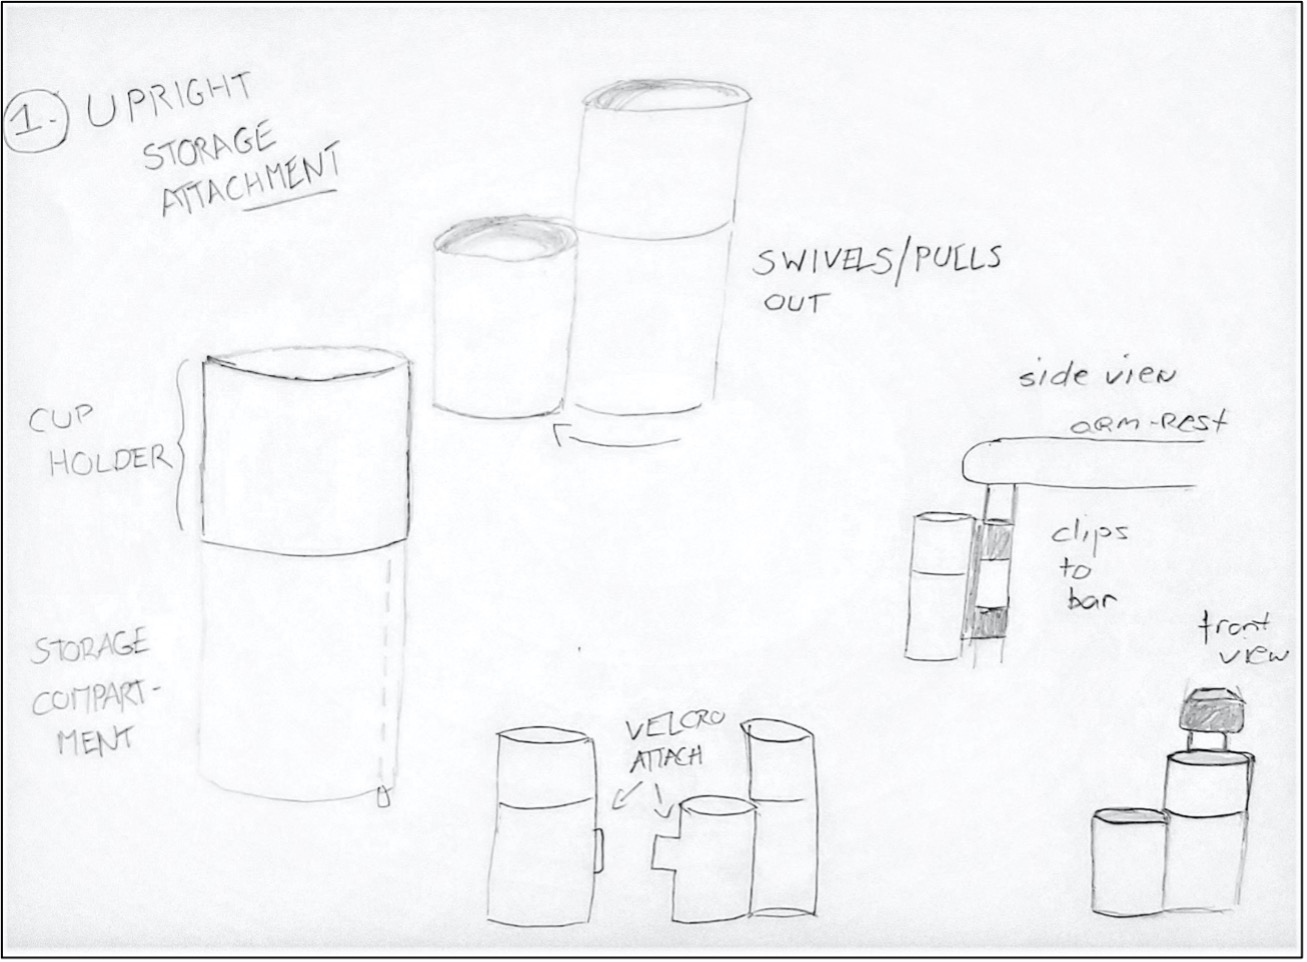 1. UPRIGHT
STORAGE
ATTACHMENT
SWIVELS/PULLS
OUT
CUP
HOLDER
STORAGE
COMPART-
MENT
side view
arm-rest
clips
to
bar
front
view
VELCRO
ATTACH